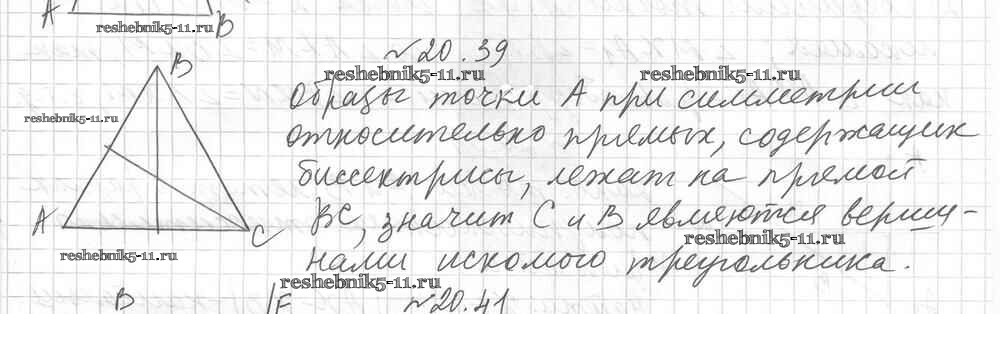 A B
reshebnik5-11.ru
№20.39
B
reshebnik5-11.ru reshebnik5-11.ru
Образы точки А при симметрии
reshebnik5-11.ru
относительно прямых, содержащих
биссектрисы, лежат на прямой
A C
ВС, значит С и В являются верши-
reshebnik5-11.ru
reshebnik5-11.ru
нами искомого треугольника.
reshebnik5-11.ru
B F №20.41